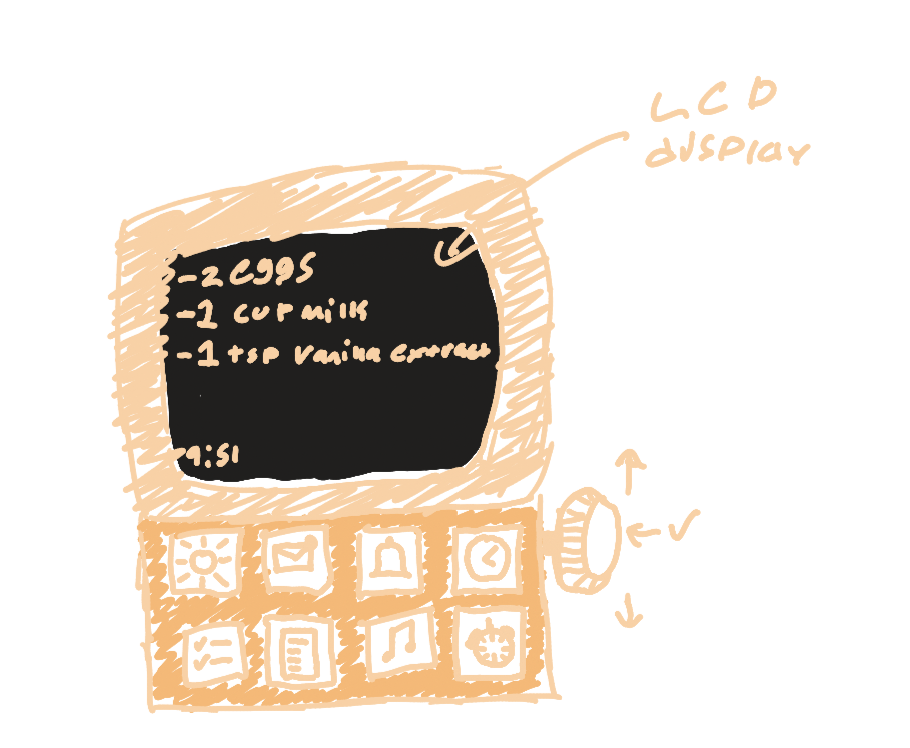 LCD
display
-2 eggs
-1 cup milk
-1 tsp vanilla extract
9:51